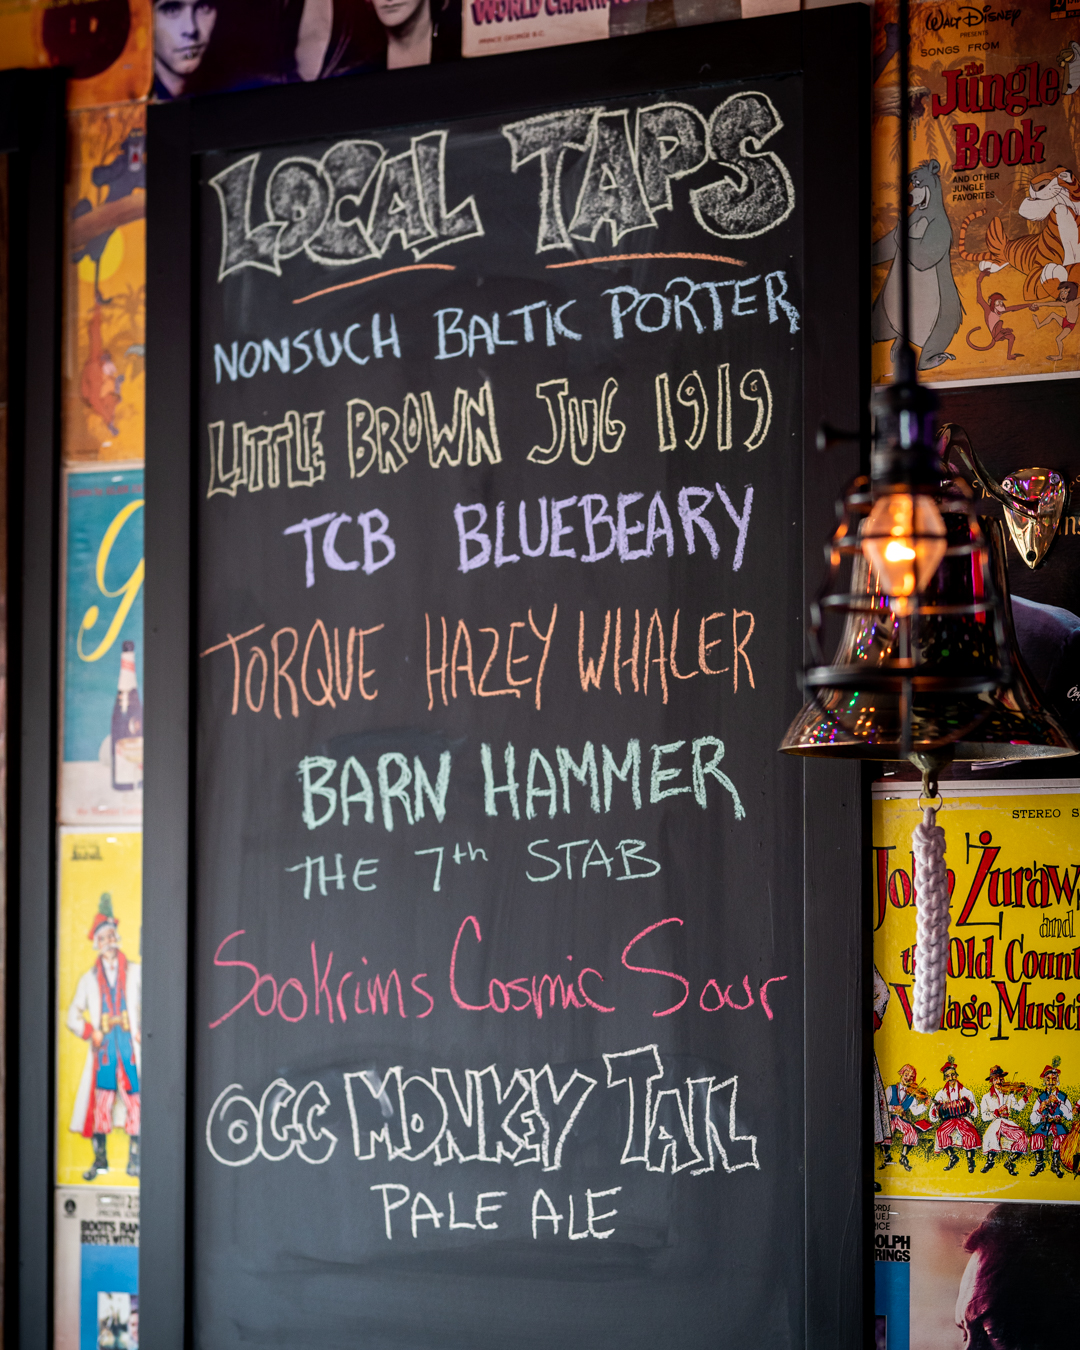 LOCAL TAPS
NONSUCH BALTIC PORTER
LITTLE BROWN JUG 1919
TCB BLUEBEARY
TORQUE HAZEY WHALER
BARN HAMMER
THE 7th STAB
Sookrims Cosmic Sour
OCC MONKEY TAIL
PALE ALE
WORLD
PRINCE GEORGE B.C.
WALT DISNEY
PRESENTS
SONGS FROM
The
Jungle
Book
AND OTHER
JUNGLE
FAVORITES
STEREO
and
Old
Village
BOOTS
BOOTS WITH